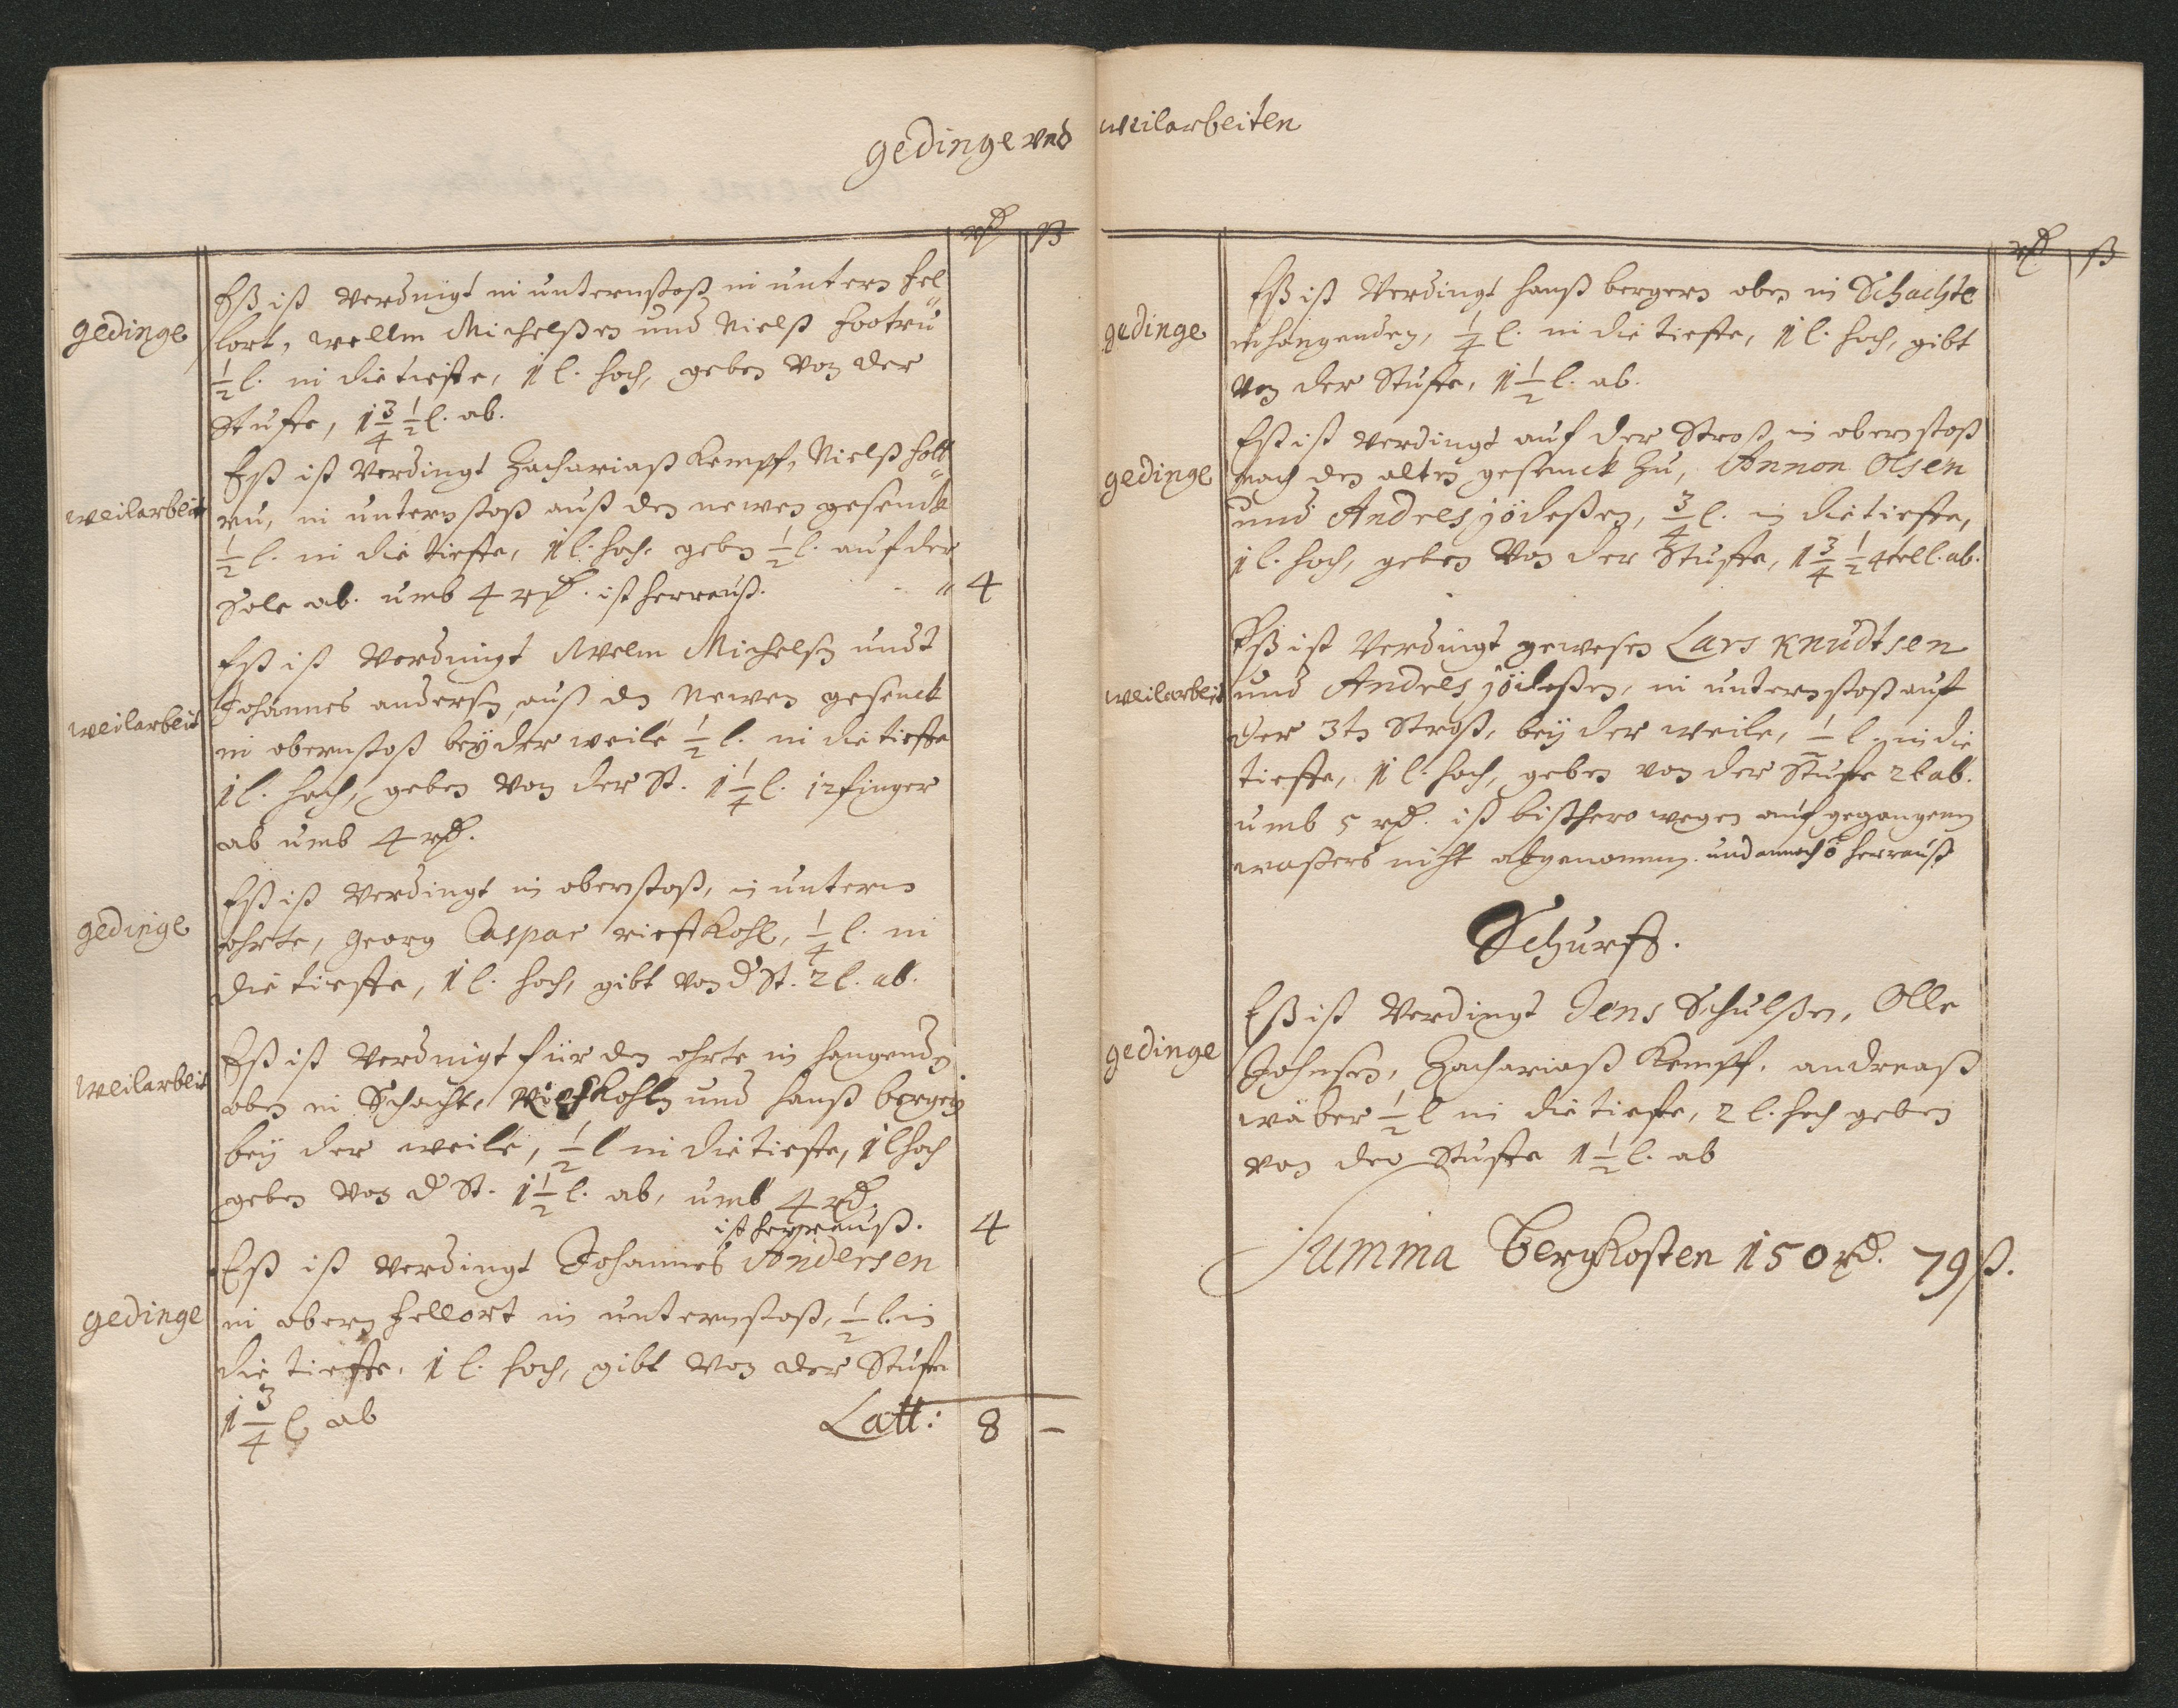 gedinge vnd weilarbeiten
rd ß
gedinge
Eß ist verdingt in unternstoß in untern fel
lort, wellm Michelßen und Nielß
1/2 l. in die tieffe, 1 l. hoch, geben von der
Stuffe, 1 3/4 1/2 l. ab.
weilarbeit
Eß ist verdingt Zachariaß Kempff, Nielß holt
ru, in unternstoß auß den newen gesenck
1/2 l. in die tieffe, 1 l. hoch, geben 1/2 l. auf der
Sole ab. umb 4 rd. ist herrauß. 4
weilarbeit
Eß ist verdingt Welm Michelsn undt
Johannes andersn, auß dn newen gesenck
in obernstoß bey der weile 1/2 l. in die tieffe
1 l. hoch, geben von der St. 1 1/4 l. 12 finger
ab umb 4 rd.
gedinge
Eß ist verdingt in obernstoß, in untern
ohrte, Georg Caspar rieffkohl, 1/4 l. in
die tieffe, 1 l. hoch, gibt von d St. 2 l. ab.
weilarbeit
Eß ist verdingt für den ohrte in hangendn
obn in Schacht, rieffkohln und hanß bergern
bey der weile, 1/2 l in die tieffe, 1 l hoch
geben von d St. 1 1/2 l. ab, umb 4 rd.
ist herrauß. 4
gedinge
Eß ist verdingt Johannes Andersen
in obern fellort in unternstoß, 1/2 l. in
die tieffe, 1 l. hoch, gibt von der Stuffe
1 3/4 l. ab Latt: 8 –
rd ß
gedinge
Eß ist verdingt hanß bergern oben in Schachte
in hangenden, 1/4 l. in die tieffe, 1 l. hoch, gibt
von der Stuffe, 1 1/2 l. ab.
gedinge
Eß ist verdingt auf der Stroß in obernstoß
nach den alten gesenck zu, Annon Olsen
und Andres jödeßen, 3/4 l. in die tieffe,
1 l. hoch, geben von der Stuffe, 1 3/4 1/2 4tel l. ab.
weilarbeit
Eß ist verdingt gewesen Lars Knudtsen
und Andres jödeßen, in unternstoß auf
der 3tn Stroß, bey der weile, 1/2 l. in die
tieffe, 1 l. hoch, geben von der Stuffe 2 l ab.
umb 5 rd. ist bißhero wegen aufgegangenen
waßers nicht abgenommen. und annoch ö herrauß
Schurff.
gedinge
Eß ist verdingt Jens Schulßen, Olle
Johnsen, Zachariaß Kempff, andreaß
wäber 1/2 l in die tieffe, 2 l. hoch geben
von der Stuffe 1 1/2 l. ab
Summa bergkosten 150 rd. 79 ß.